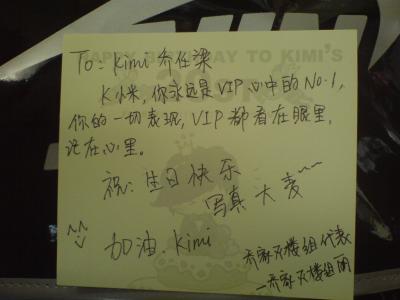 HAPPY BIRTHDAY TO KIMI'S
To: Kimi 乔任梁
K小米,你永远是VIP心中的No.1,
你的一切表现,VIP都看在眼里,
记在心里。
祝:生日快乐
写真大卖~~
加油.Kimi
乔家灭楼组代表
—乔家灭楼组丽